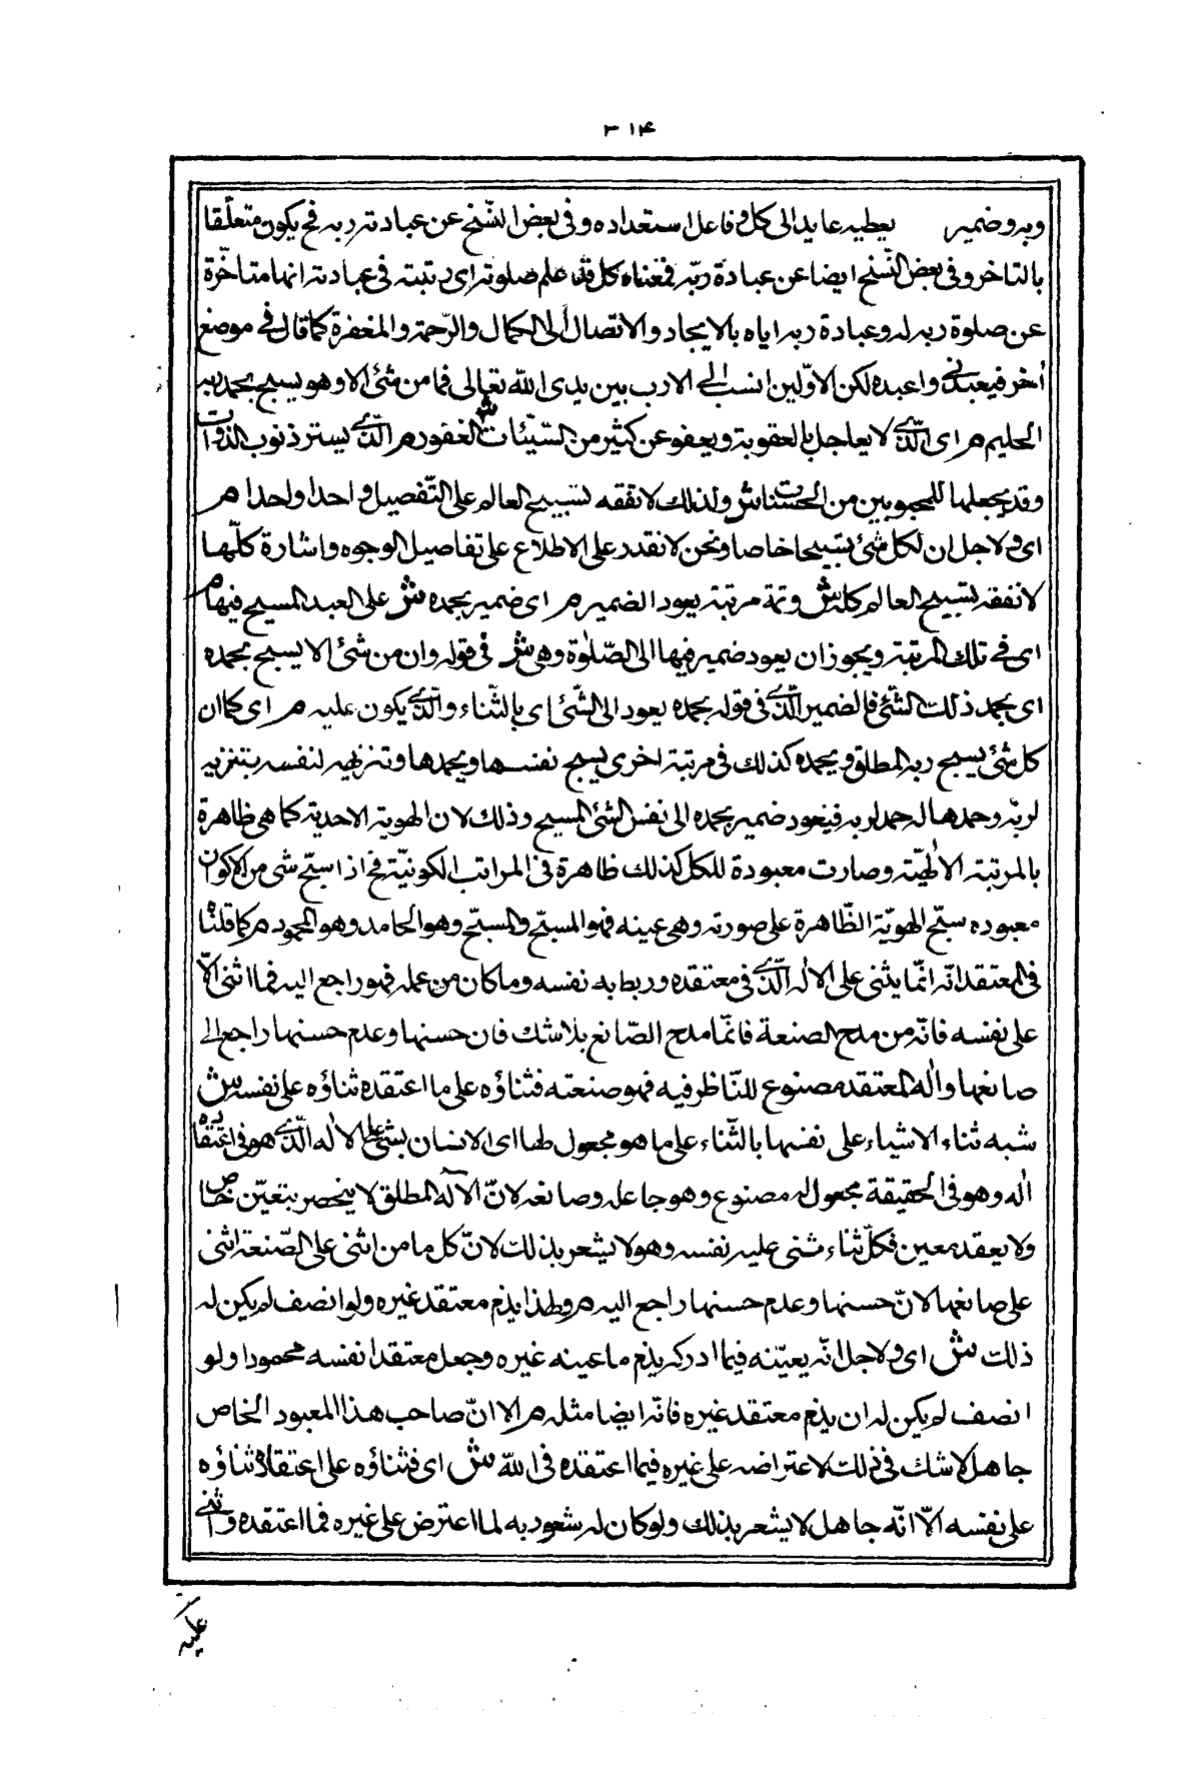 ٣١۴
وبه وضمير يعطيه عايد الى كل وفاعل استعداده وفى بعض النّسخ عن عبادته ربه فح يكون متعلّقا
بالتاخر وفى بعض النّسخ ايضا عن عبادة ربّه فمعناه كل قد علم صلوته اى رتبته فى عبادته انها متاخّرة
عن صلوة ربه له وعبادة ربه اياه بالايجاد والاتصال الى الكمال والرّحمة والمغفرة كما قال فى موضع
اخر فيعبدنى واعبده لكن الاوّلين انسب الى الادب بين يدى اللّه تعالى فما من شئ الا وهو يسبح بحمد ربه
الحليم م اى الّذى لا يعاجل بالعقوبة ويعفو عن كثير من السّيّئات ش الغفور م الّذى يستر ذنوب الذوات
وقد يجعلها للمحبوبين من الحسنات ش ولذلك لا نفقه تسبيح العالم على التّفصيل واحدا واحدا م
اى ولاجل ان لكل شئ تسبيحا خاصا ونحن لا نقدر على الاطلاع على تفاصيل الوجوه واشارة كلّها
لا نفقه تسبيح العالم كله ش وثمة مرتبة يعود الضمير م اى ضمير بحمده ش على العبد المسبح فيها م
اى فى تلك المرتبة ويجوز ان يعود ضمير فيها الى الصّلوة وهى ش فى قوله وان من شئ الا يسبح بحمده
اى بحمد ذلك الشّئ فالضمير الّذى فى قوله بحمده يعود الى الشّئ اى بالثّناء والّذى يكون عليه م اى كما ان
كل شئ يسبح ربه المطلق ويحمده كذلك فى مرتبة اخرى يسبح نفسها ويحمدها وتنزيهه لنفسه بتنزيه
لربّه وحمدها له حمد لربه فيعود ضمير بحمده الى نفس الشئ المسبح وذلك لان الهوية الاحدية كما هى ظاهرة
بالمرتبة الالهيّة وصارت معبودة للكل كذلك ظاهرة فى المراتب الكونيّة فح اذا سبّح شى من الاكوان
معبوده سبّح الهويّة الظّاهرة على صورته وهى عينه فهو المسبّح والمسبّح وهو الحامد وهو المحمود م كما قلناه
فى المعتقد انّه انّما يثنى على الاله الّذى فى معتقده وربط به نفسه وما كان من عمله فهو راجع اليه فما اثنى الّا
على نفسه فانّه من مدح الصنعة فانّما مدح الصّانع بلا شك فان حسنها وعدم حسنها راجع الى
صانعها واله المعتقد مصنوع للنّاظر فيه فهو صنعته فثناؤه على ما اعتقده ثناؤه على نفسه ش
شبه ثناء الاشياء على نفسها بالثّناء على ما هو مجعول لها اى الانسان يثنى على الاله الّذى هو فى اعتقاده
اله وهو فى الحقيقة مجعول له مصنوع وهو جاعله وصانعه لانّ الآله المطلق لا ينحصر بتعيّن خاص
ولا يعقد معين فكلّ ثناء يثنى عليه نفسه وهو لا يشعر بذلك لانّ كل ما من اثنى على الصّنعة اثنى
على صانعها لانّ حسنها وعدم حسنها راجع اليه م ولهذا يذم معتقد غيره ولو انصف لم يكن له
ذلك ش اى ولاجل انّه يعيّنه فيما ادركه يذم ما عينه غيره وجعل معتقد انفسه محمودا ولو
انصف لم يكن له ان يذم معتقد غيره فانّه ايضا مثله م الا انّ صاحب هذا المعبود الخاص
جاهل لا شك فى ذلك لاعتراضه على غيره فيما اعتقده فى اللّه ش اى فثناؤه على اعتقاده ثناؤه
على نفسه الّا انّه جاهل لا يشعر بذلك ولو كان له شعور به لما اعترض على غيره فما اعتقده واثنى
عليه